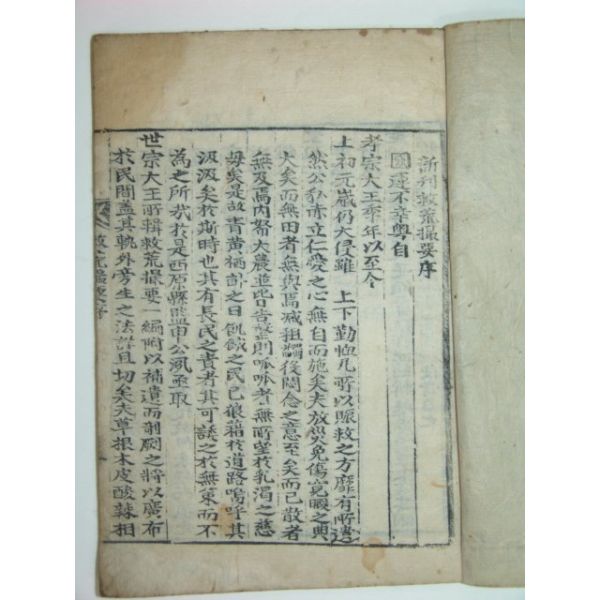 新刊救荒撮要序
國運不幸粤自
孝宗大王季年以至今
上初元歲仍大侵雖 上下勤恤凡所以賑救之方靡有所遺
然公私赤立仁愛之心無自而施矣夫放哭免傷寬暇之典
大矣而無田者無與焉減租蠲役閔念之意至矣而已散者
無及焉內帑大農並皆告罄則呱呱者無所望於乳渴之慈
母矣是故青黃禍計之日飢餓之民已狼藉於道路嗚呼其
汲汲矣於斯時也其有長民之責者其可諉之於無策而不
為之所哉於是西原縣監申公夙亟取
世宗大王所輯救荒撮要一編附以補遺而剞劂之將以廣布
於民間盖其軌外旁生之法詳且切矣夫草根木皮酸辣相
救荒撮要序